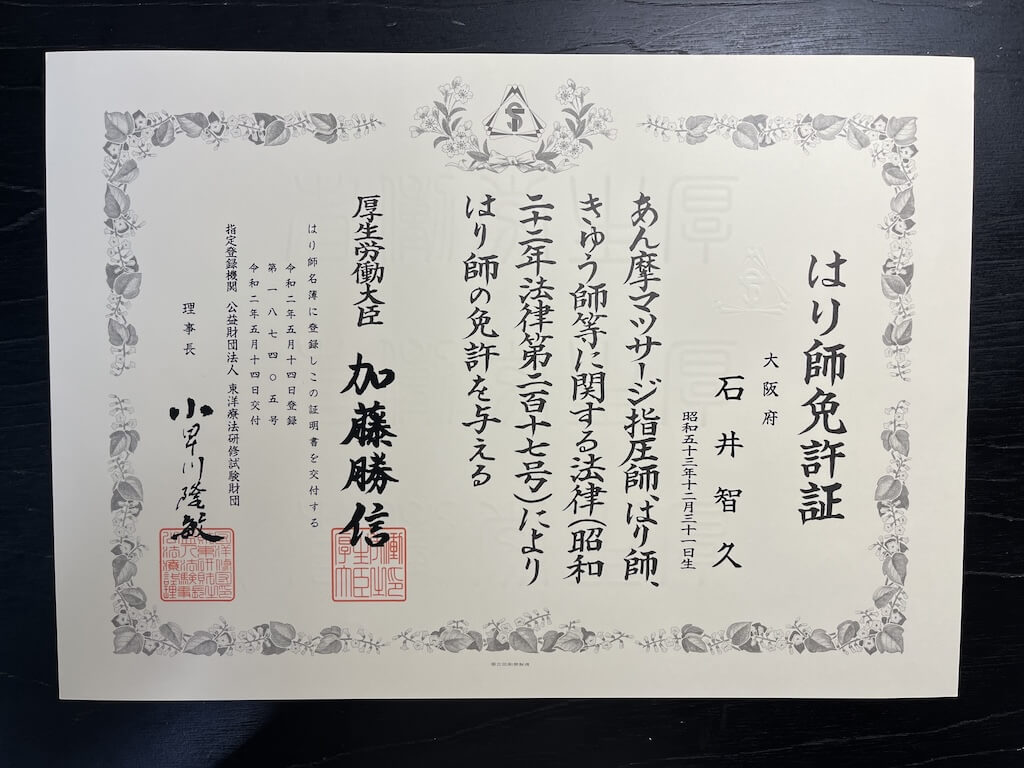 はり師免許証
大阪府
石井智久
昭和五十三年十二月三十一日生
あん摩マツサージ指圧師、はり師、
きゆう師等に関する法律(昭和
二十二年法律第二百十七号)により
はり師の免許を与える
厚生労働大臣 加藤勝信
はり師名簿に登録しこの証明書を交付する
令和二年五月十四日登録
第一八七四〇五号
令和二年五月十四日交付
指定登録機関 公益財団法人 東洋療法研修試験財団
理事長 小早川隆敏